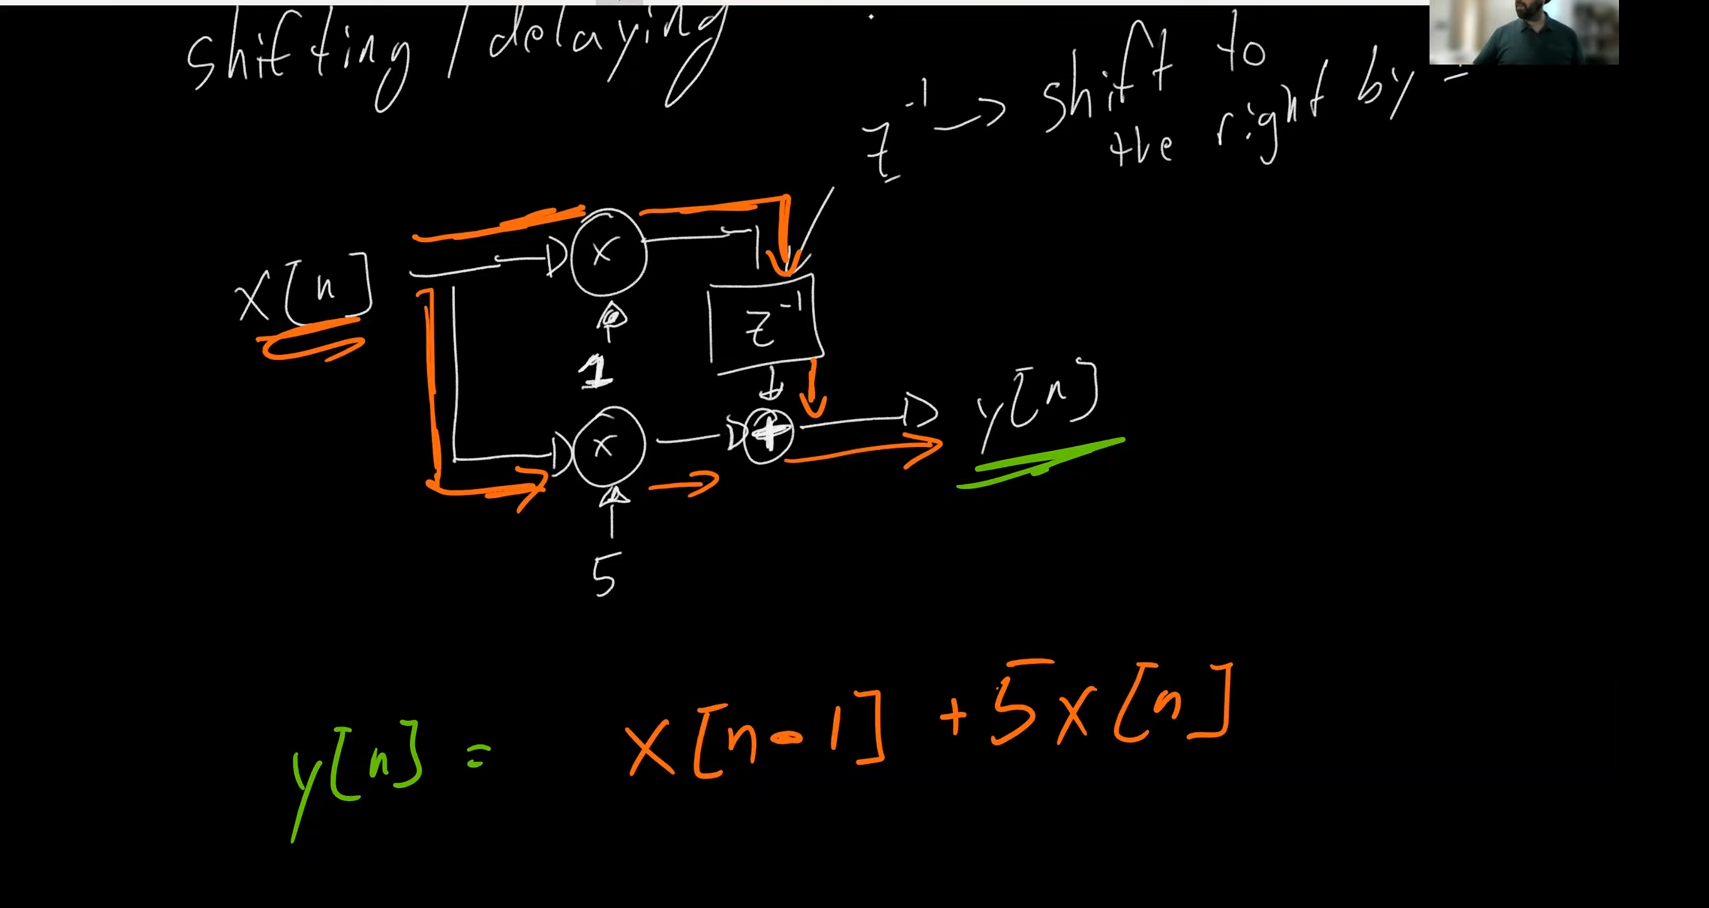 shifting / delaying
z⁻¹ → shift to
the right by
x
x[n]
z⁻¹
1
x
+
y[n]
5
y[n] = x[n-1] + 5x[n]